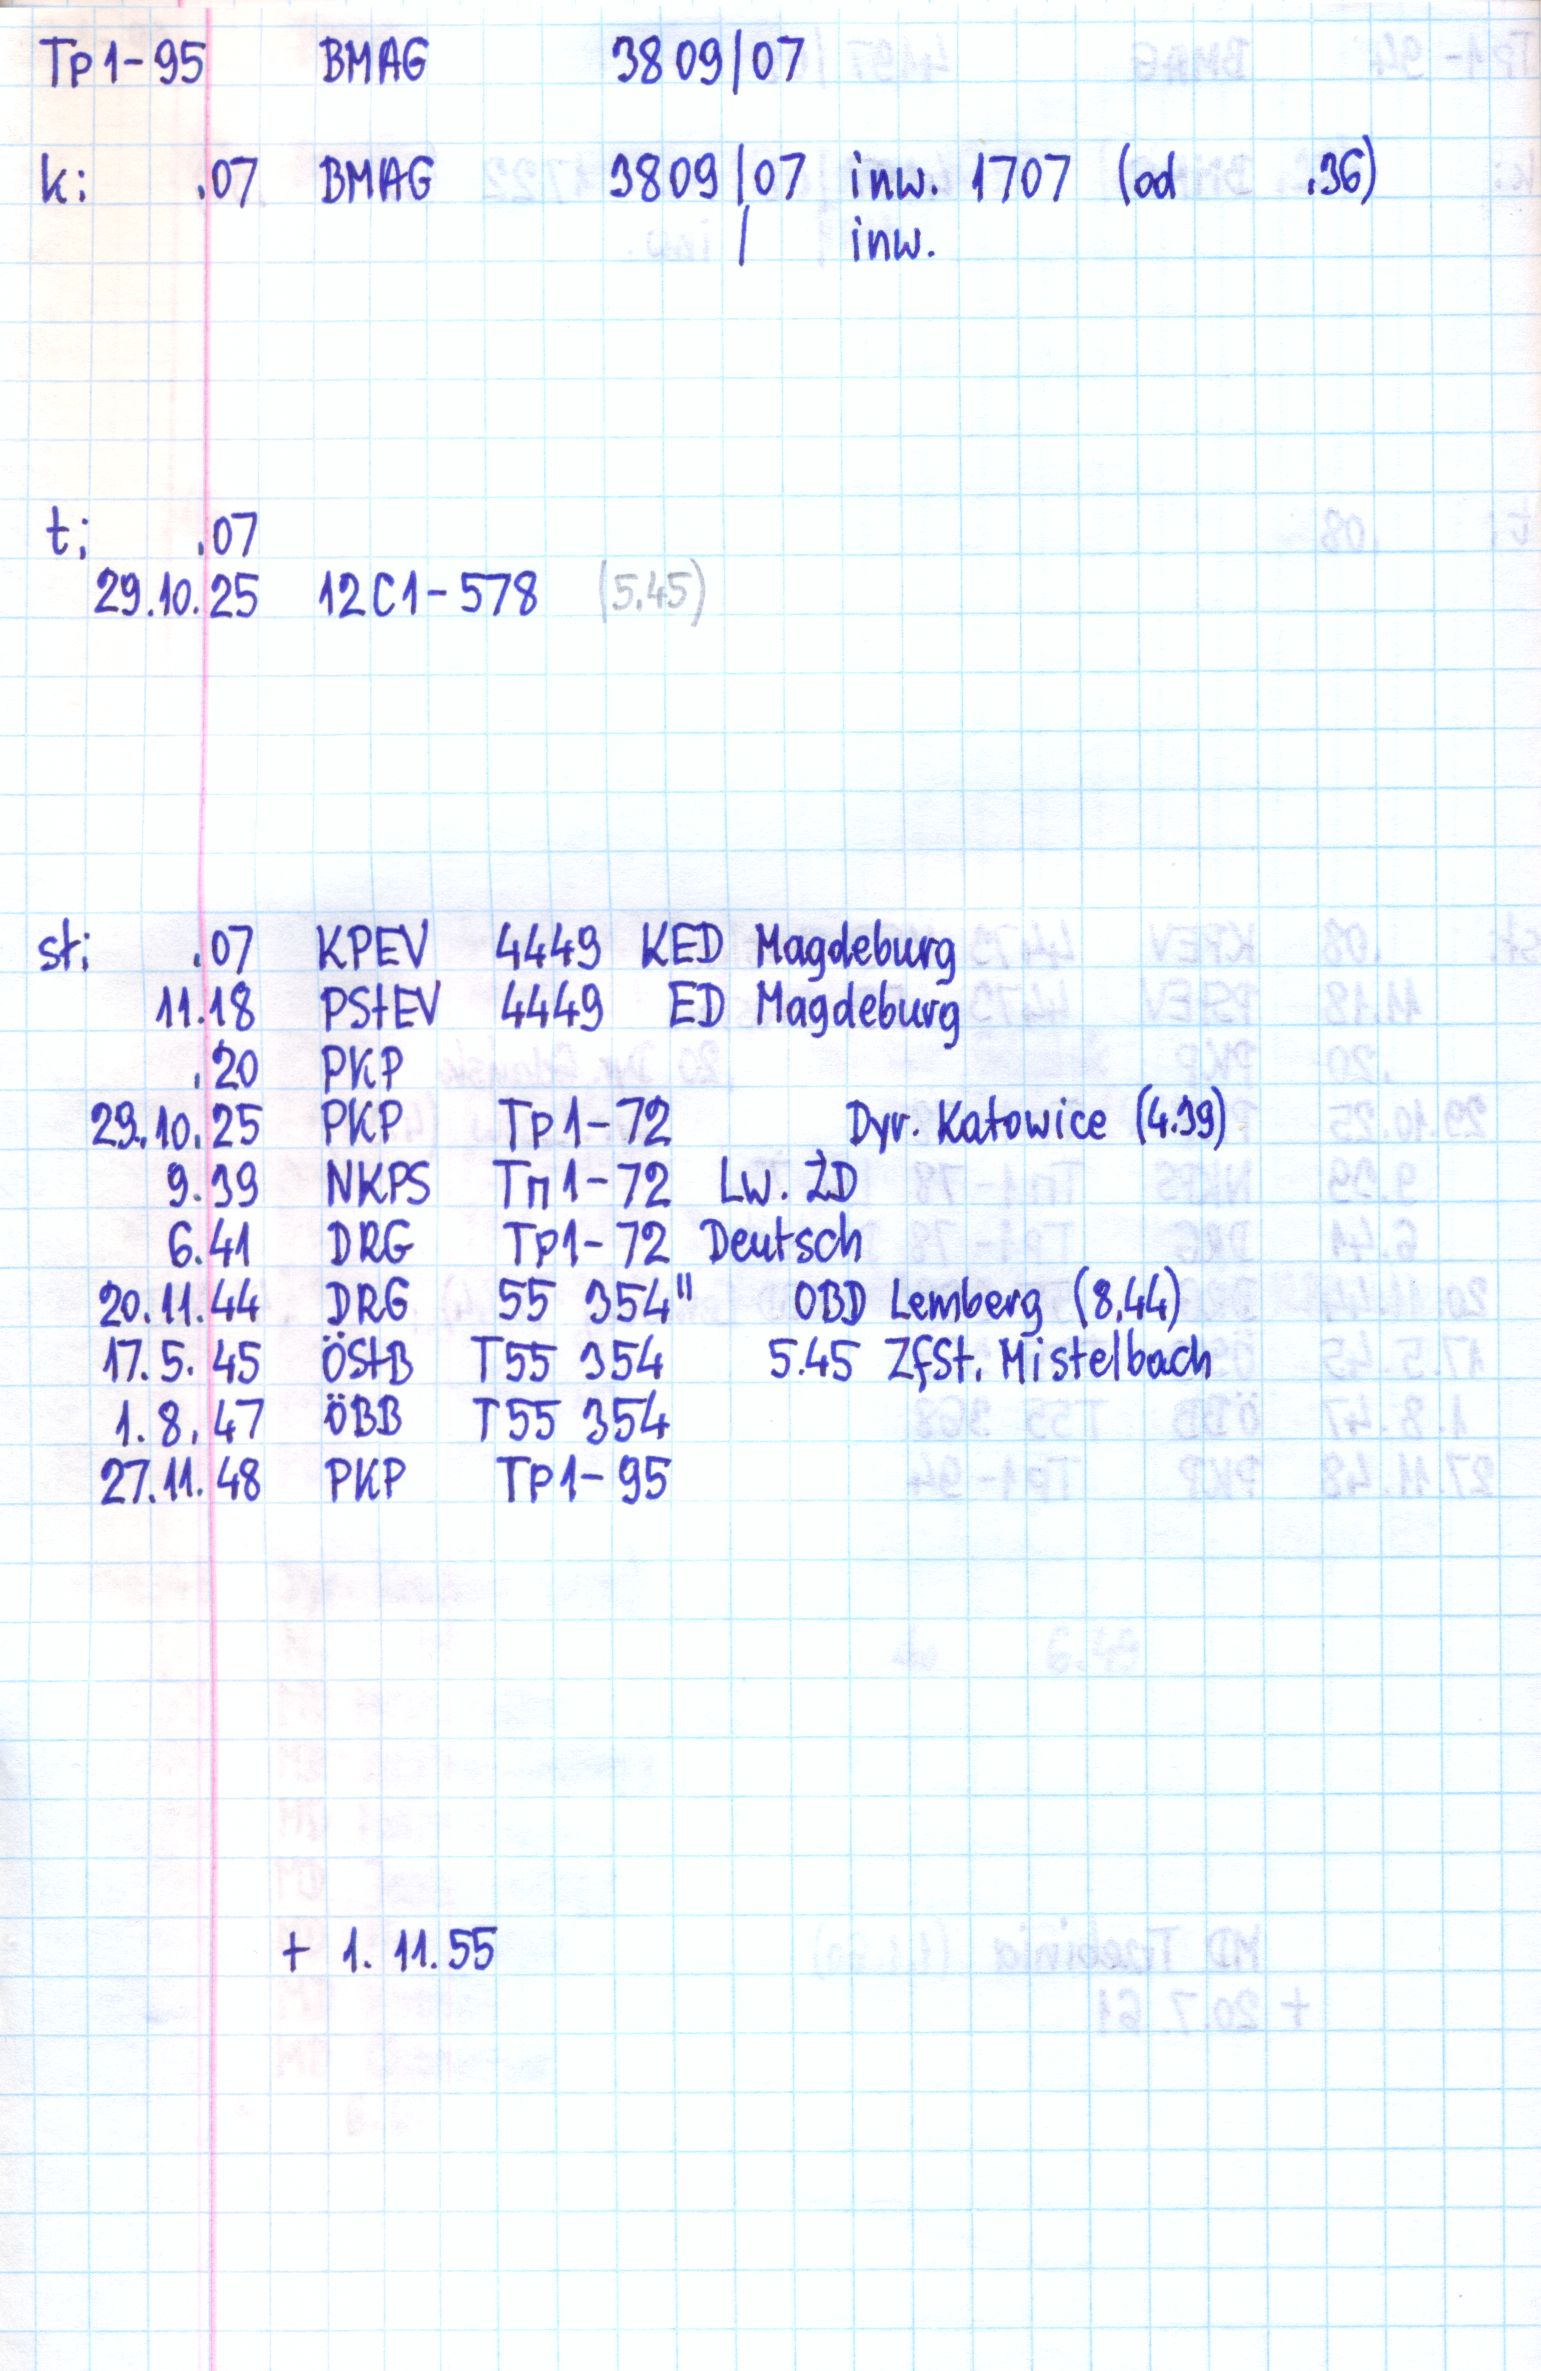 Tp1-95 BMAG 3809/07
k: .07 BMAG 3809/07 inw. 1707 (od .36)
/ inw.
t: .07
29.10.25 12C1-578 (5.45)
st: .07 KPEV 4449 KED Magdeburg
11.18 PStEV 4449 ED Magdeburg
.20 PKP
29.10.25 PKP Tp1-72 Dyr. Katowice (4.39)
9.39 NKPS Тп1-72 Lw. ŻD
6.41 DRG Tp1-72 Deutsch
20.11.44 DRG 55 354" OBD Lemberg (8.44)
17.5.45 ÖStB T55 354 5.45 ZfSt. Mistelbach
1.8.47 ÖBB T55 354
27.11.48 PKP Tp1-95
+ 1.11.55